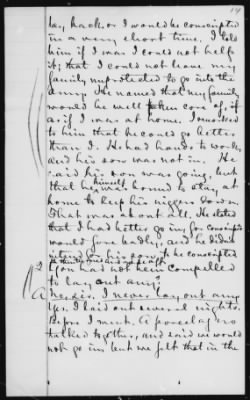 19
back or I would be conscripted
in a very short time. I told
him if I was I could not help
it; that I could not leave my
family unprotected to go into the
army. He named that my family
would be well taken care of, if
as if I was at home. I mentioned
to him that he could go better
than I. He had hands to work
and his son was not in. He
said his son was going, but
that he himself was bound to stay at
home to keep his niggers down.
That was about all. He stated
that I had better go in, for conscripts
would fare badly, and he didn't
be conscripted
2 you had not been compelled
to lay out any?
A Yes sir. I never lay out any
I laid out several nights
before I went. A parcel of us
talked together, and said we would
not go in, but we felt that in the